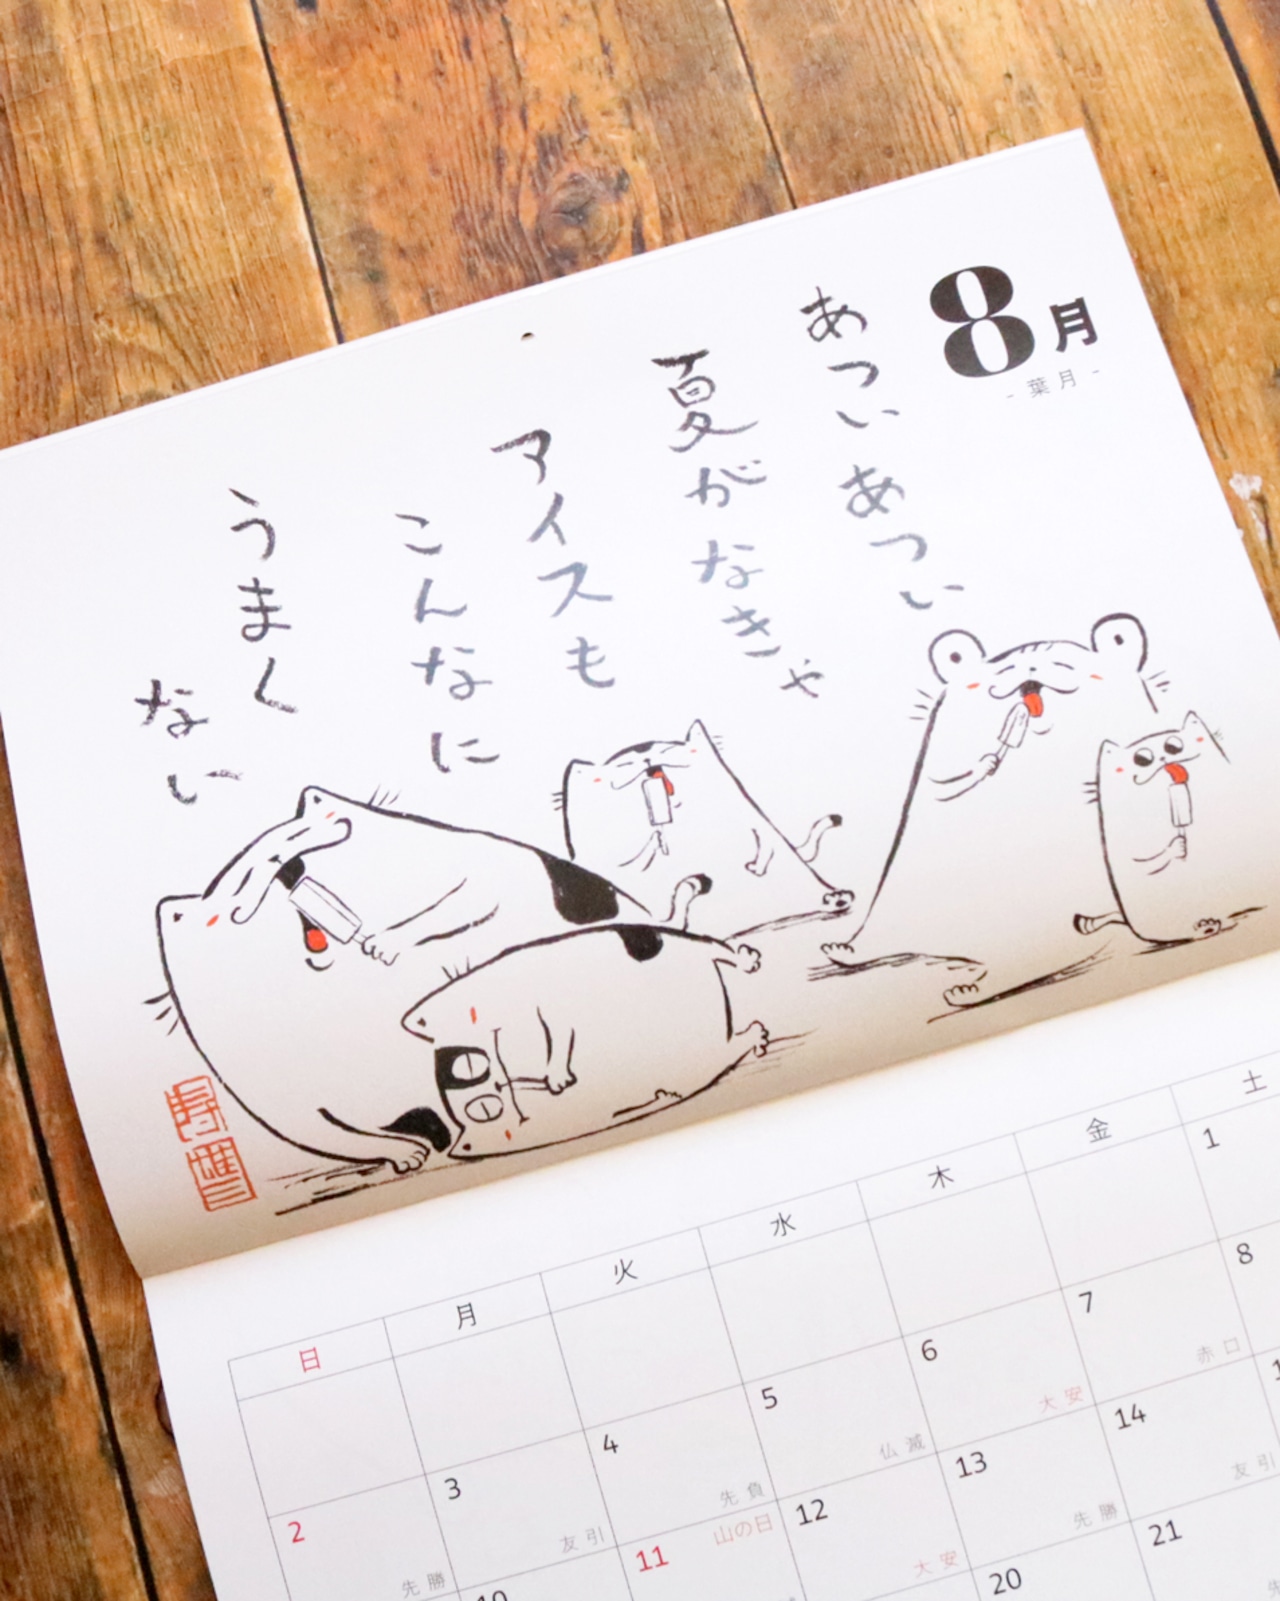 8月
- 葉月 -
あつい あつい
夏がなきゃ
アイスも
こんなに
うまく
ない
日 月 火 水 木 金 土
1
2 先勝
3 友引
4 先負
5 仏滅
6 大安
7 赤口
8
10
11 山の日
12 大安
13 先勝
14 友引
20
21